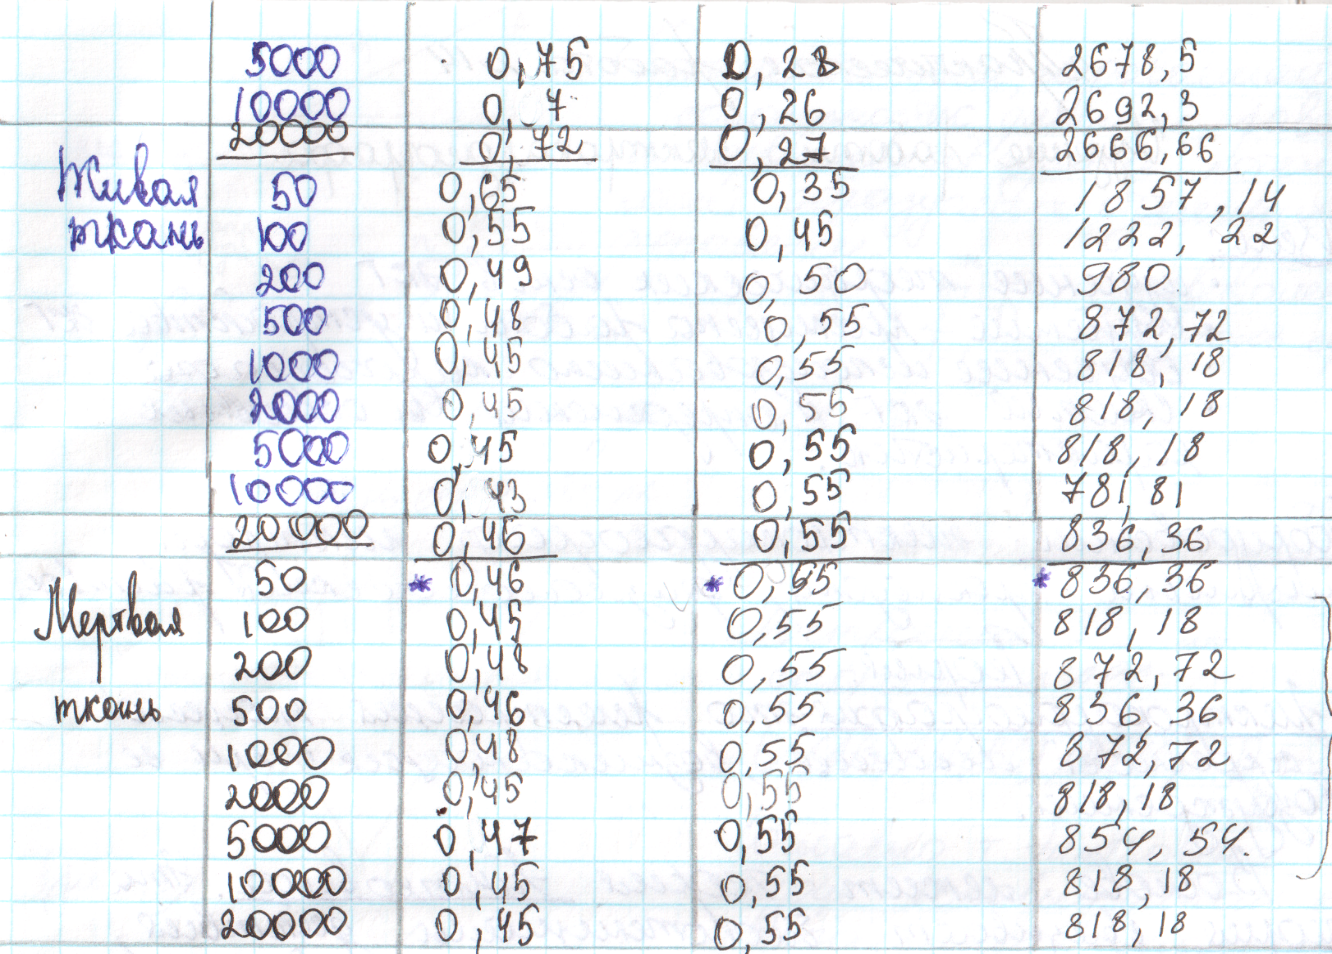 5000 0,75 0,28 2678,5
10000 0,7 0,26 2692,3
20000 0,72 0,27 2666,66
Живая 50 0,65 0,35 1857,14
ткань 100 0,55 0,45 1222,22
200 0,49 0,50 980
500 0,48 0,55 872,72
1000 0,45 0,55 818,18
2000 0,45 0,55 818,18
5000 0,45 0,55 818,18
10000 0,43 0,55 781,81
20000 0,46 0,55 836,36
50 * 0,46 * 0,55 * 836,36
Мертвая 100 0,45 0,55 818,18
200 0,48 0,55 872,72
ткань 500 0,46 0,55 836,36
1000 0,48 0,55 872,72
2000 0,45 0,55 818,18
5000 0,47 0,55 854,54.
10000 0,45 0,55 818,18
20000 0,45 0,55 818,18